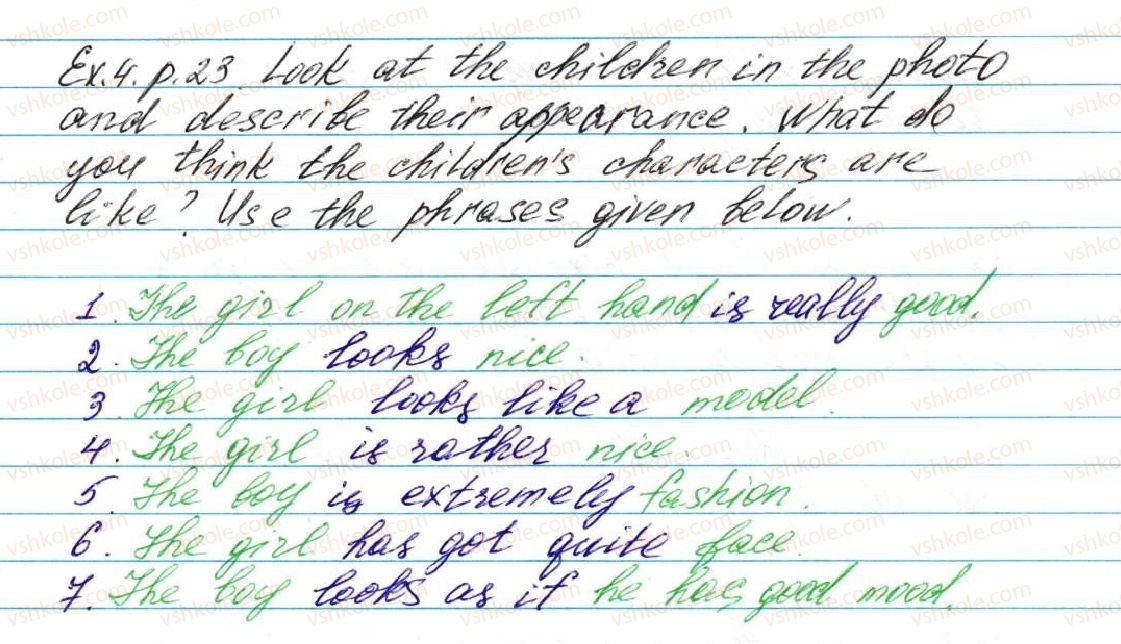 Ex.4.p.23 Look at the children in the photo
and describe their appearance. What do
you think the children's characters are
like? Use the phrases given below.
1. The girl on the left hand is really good.
2. The boy looks nice.
3 The girl looks like a model.
4. The girl is rather nice.
5. The boy is extremely fashion.
6. The girl has got quite face.
7. The boy looks as if he has good mood.
vshkole.com